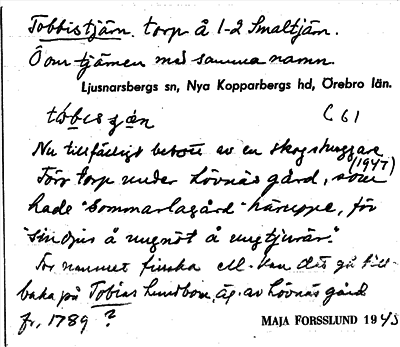 Tobbistjärn. torp å 1-2 Smaltjärn.
Ö om tjärnen med samma namn.
Ljusnarsbergs sn, Nya Kopparbergs hd, Örebro län.
C 61
Nu tillfälligt bebott av en skogshuggare
(1947)
Förr torp under Lövnäs gård, som
hade "Sommarlagård" häruppe, för
å ungnöt å ungtjurär."
namnet finska el. kan det gå till-
baka på Tobias äg. av Lövnäs gård
fr. 1789 ?
MAJA FORSSLUND 1943